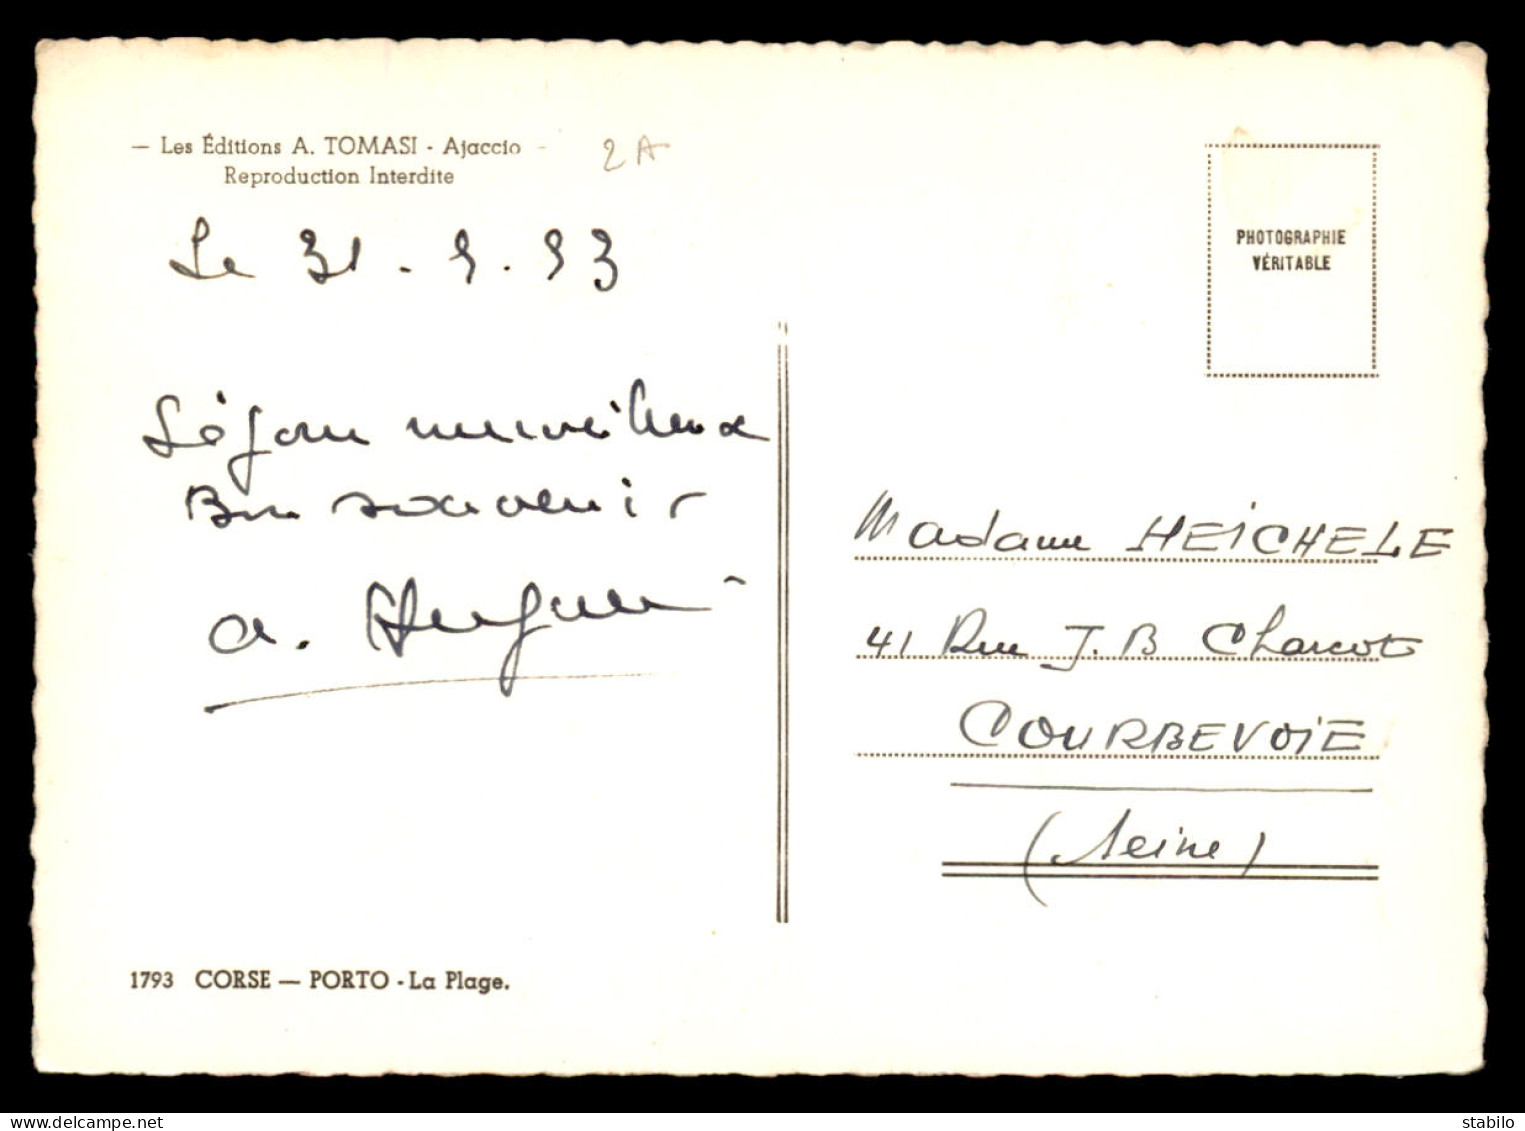 — Les Éditions A. TOMASI - Ajaccio -
Reproduction Interdite
2A
Le 31.5.53
Séjour merveilleux
Bon souvenir
a.
PHOTOGRAPHIE
VÉRITABLE
Madame HEICHELE
41 Rue J.B Charcot
COURBEVOIE
(Seine)
1793 CORSE — PORTO - La Plage.
delcampe.net
stabilo